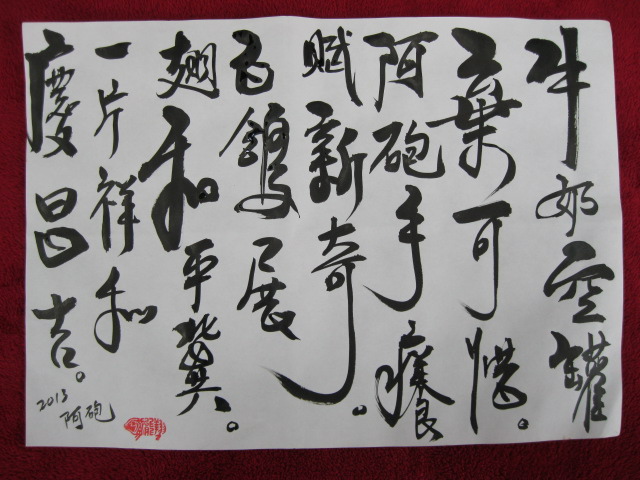 牛奶空罐
棄可惜。
阿砲手癢
賦新奇。
白鴿展
翅和平冀。
一片祥和
慶昌吉。
2013
阿砲